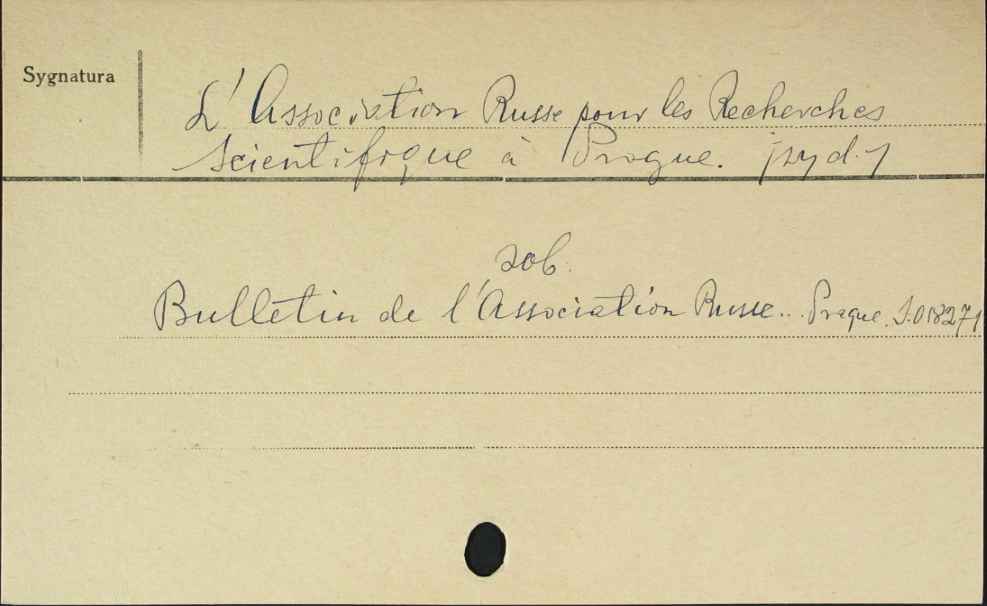 Sygnatura
L'Association Russe pour les Recherches
Scientifique à Prague. /wyd./
zob.
Bulletin de l'Association Russe.. Prague. J.018271